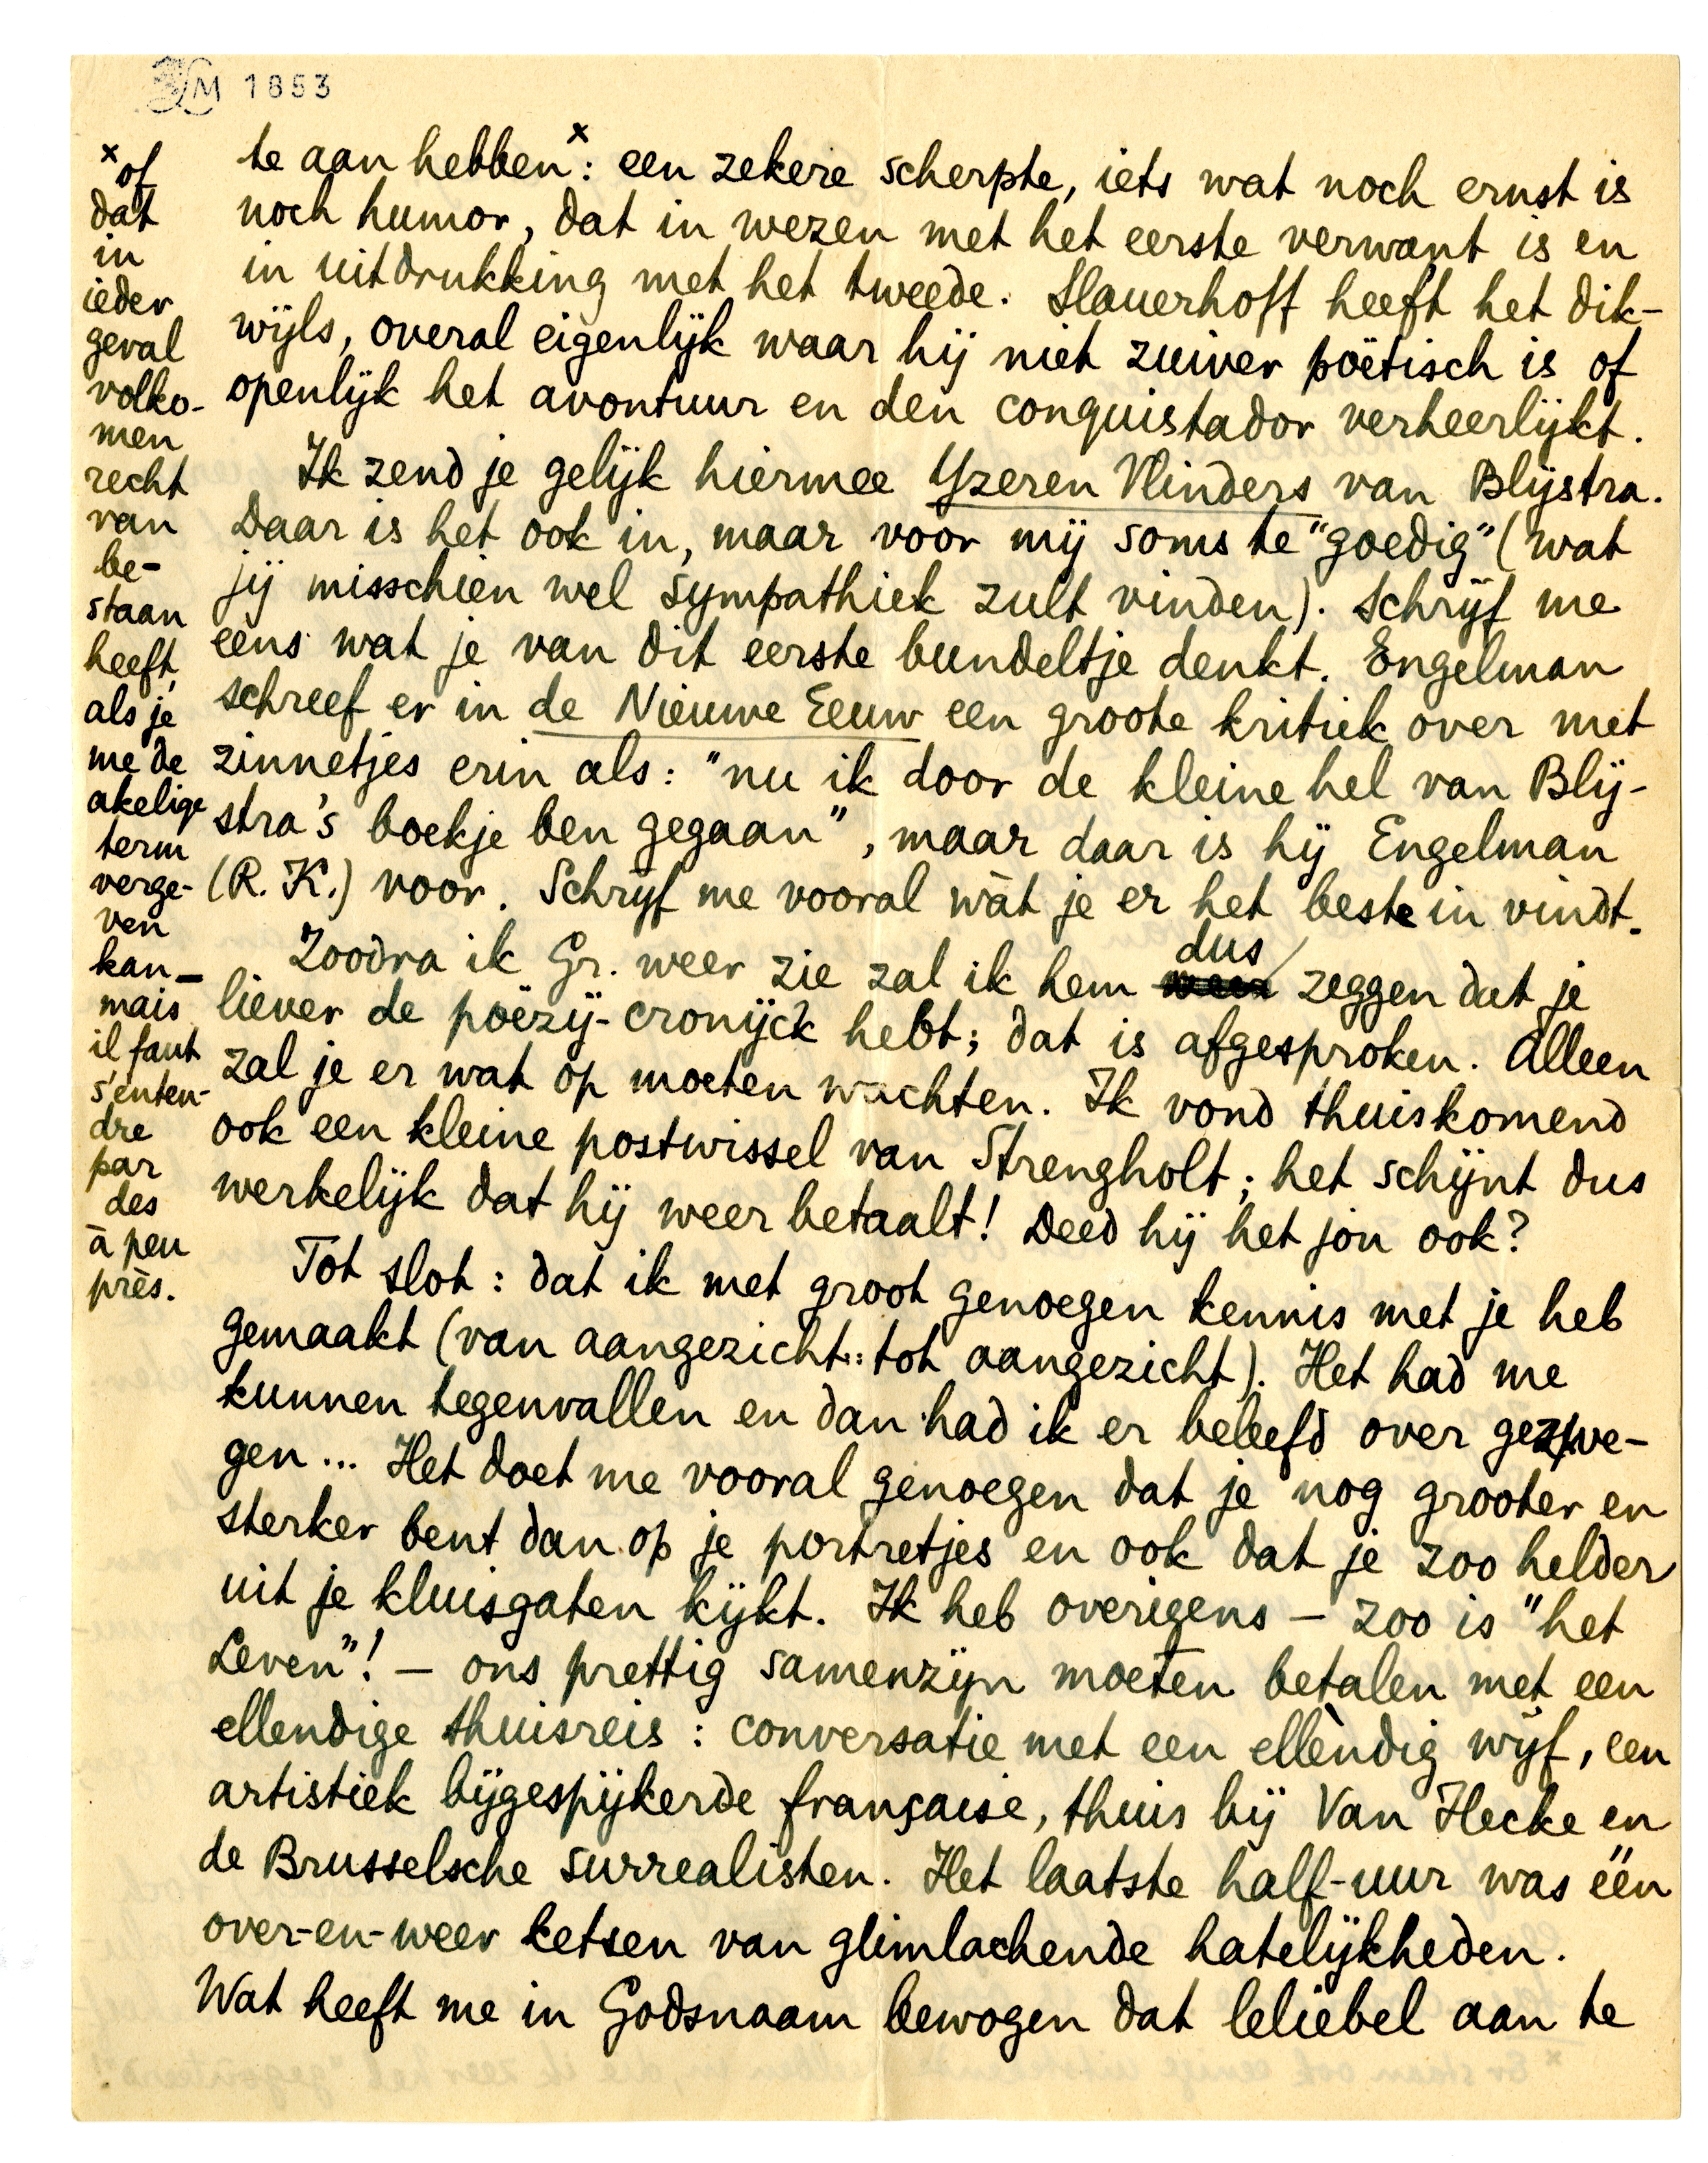 LM 1853
te aan hebben x: een zekere scherpte, iets wat noch ernst is
noch humor, dat in wezen met het eerste verwant is en
in uitdrukking met het tweede. Slauerhoff heeft het dik-
wijls, overal eigenlijk waar hij niet zuiver poëtisch is of
openlijk het avontuur en den conquistador verheerlijkt.
Ik zend je gelijk hiermee Yzeren Vlinders van Blijstra.
Daar is het ook in, maar voor mij soms te "goedig" (wat
jij misschien wel sympathiek zult vinden). Schrijf me
eens wat je van dit eerste bundeltje denkt. Engelman
schreef er in de Nieuwe Eeuw een groote kritiek over met
zinnetjes erin als: "nu ik door de kleine hel van Blij-
stra's boekje ben gegaan", maar daar is hij Engelman
(R. K.) voor. Schrijf me vooral wàt je er het beste in vindt.
Zoodra ik Gr. weer zie zal ik hem weer dus zeggen dat je
liever de poëzij-cronijck hebt; dat is afgesproken. Alleen
zal je er wat op moeten wachten. Ik vond thuiskomend
ook een kleine postwissel van Strengholt; het schijnt dus
werkelijk dat hij weer betaalt! Deed hij het jou ook?
Tot slot: dat ik met groot genoegen kennis met je heb
gemaakt (van aangezicht tot aangezicht). Het had me
kunnen tegenvallen en dan had ik er beleefd over gezwe-
gen... Het doet me vooral genoegen dat je nog grooter en
sterker bent dan op je portretjes en ook dat je zoo helder
uit je kluisgaten kijkt. Ik heb overigens — zoo is "het
Leven"! — ons prettig samenzijn moeten betalen met een
ellendige thuisreis: conversatie met een ellèndig wijf, een
artistiek bijgespijkerde française, thuis bij Van Hecke en
de Brusselsche surrealisten. Het laatste half-uur was één
over-en-weer ketsen van glimlachende hatelijkheden.
Wat heeft me in Godsnaam bewogen dat leliebel aan te
x of
dat
in
ieder
geval
volko-
men
recht
van
be-
staan
heeft,
als je
me de
akelige
term
verge-
ven
kan —
mais
il faut
s'enten-
dre
par
des
à peu
près.